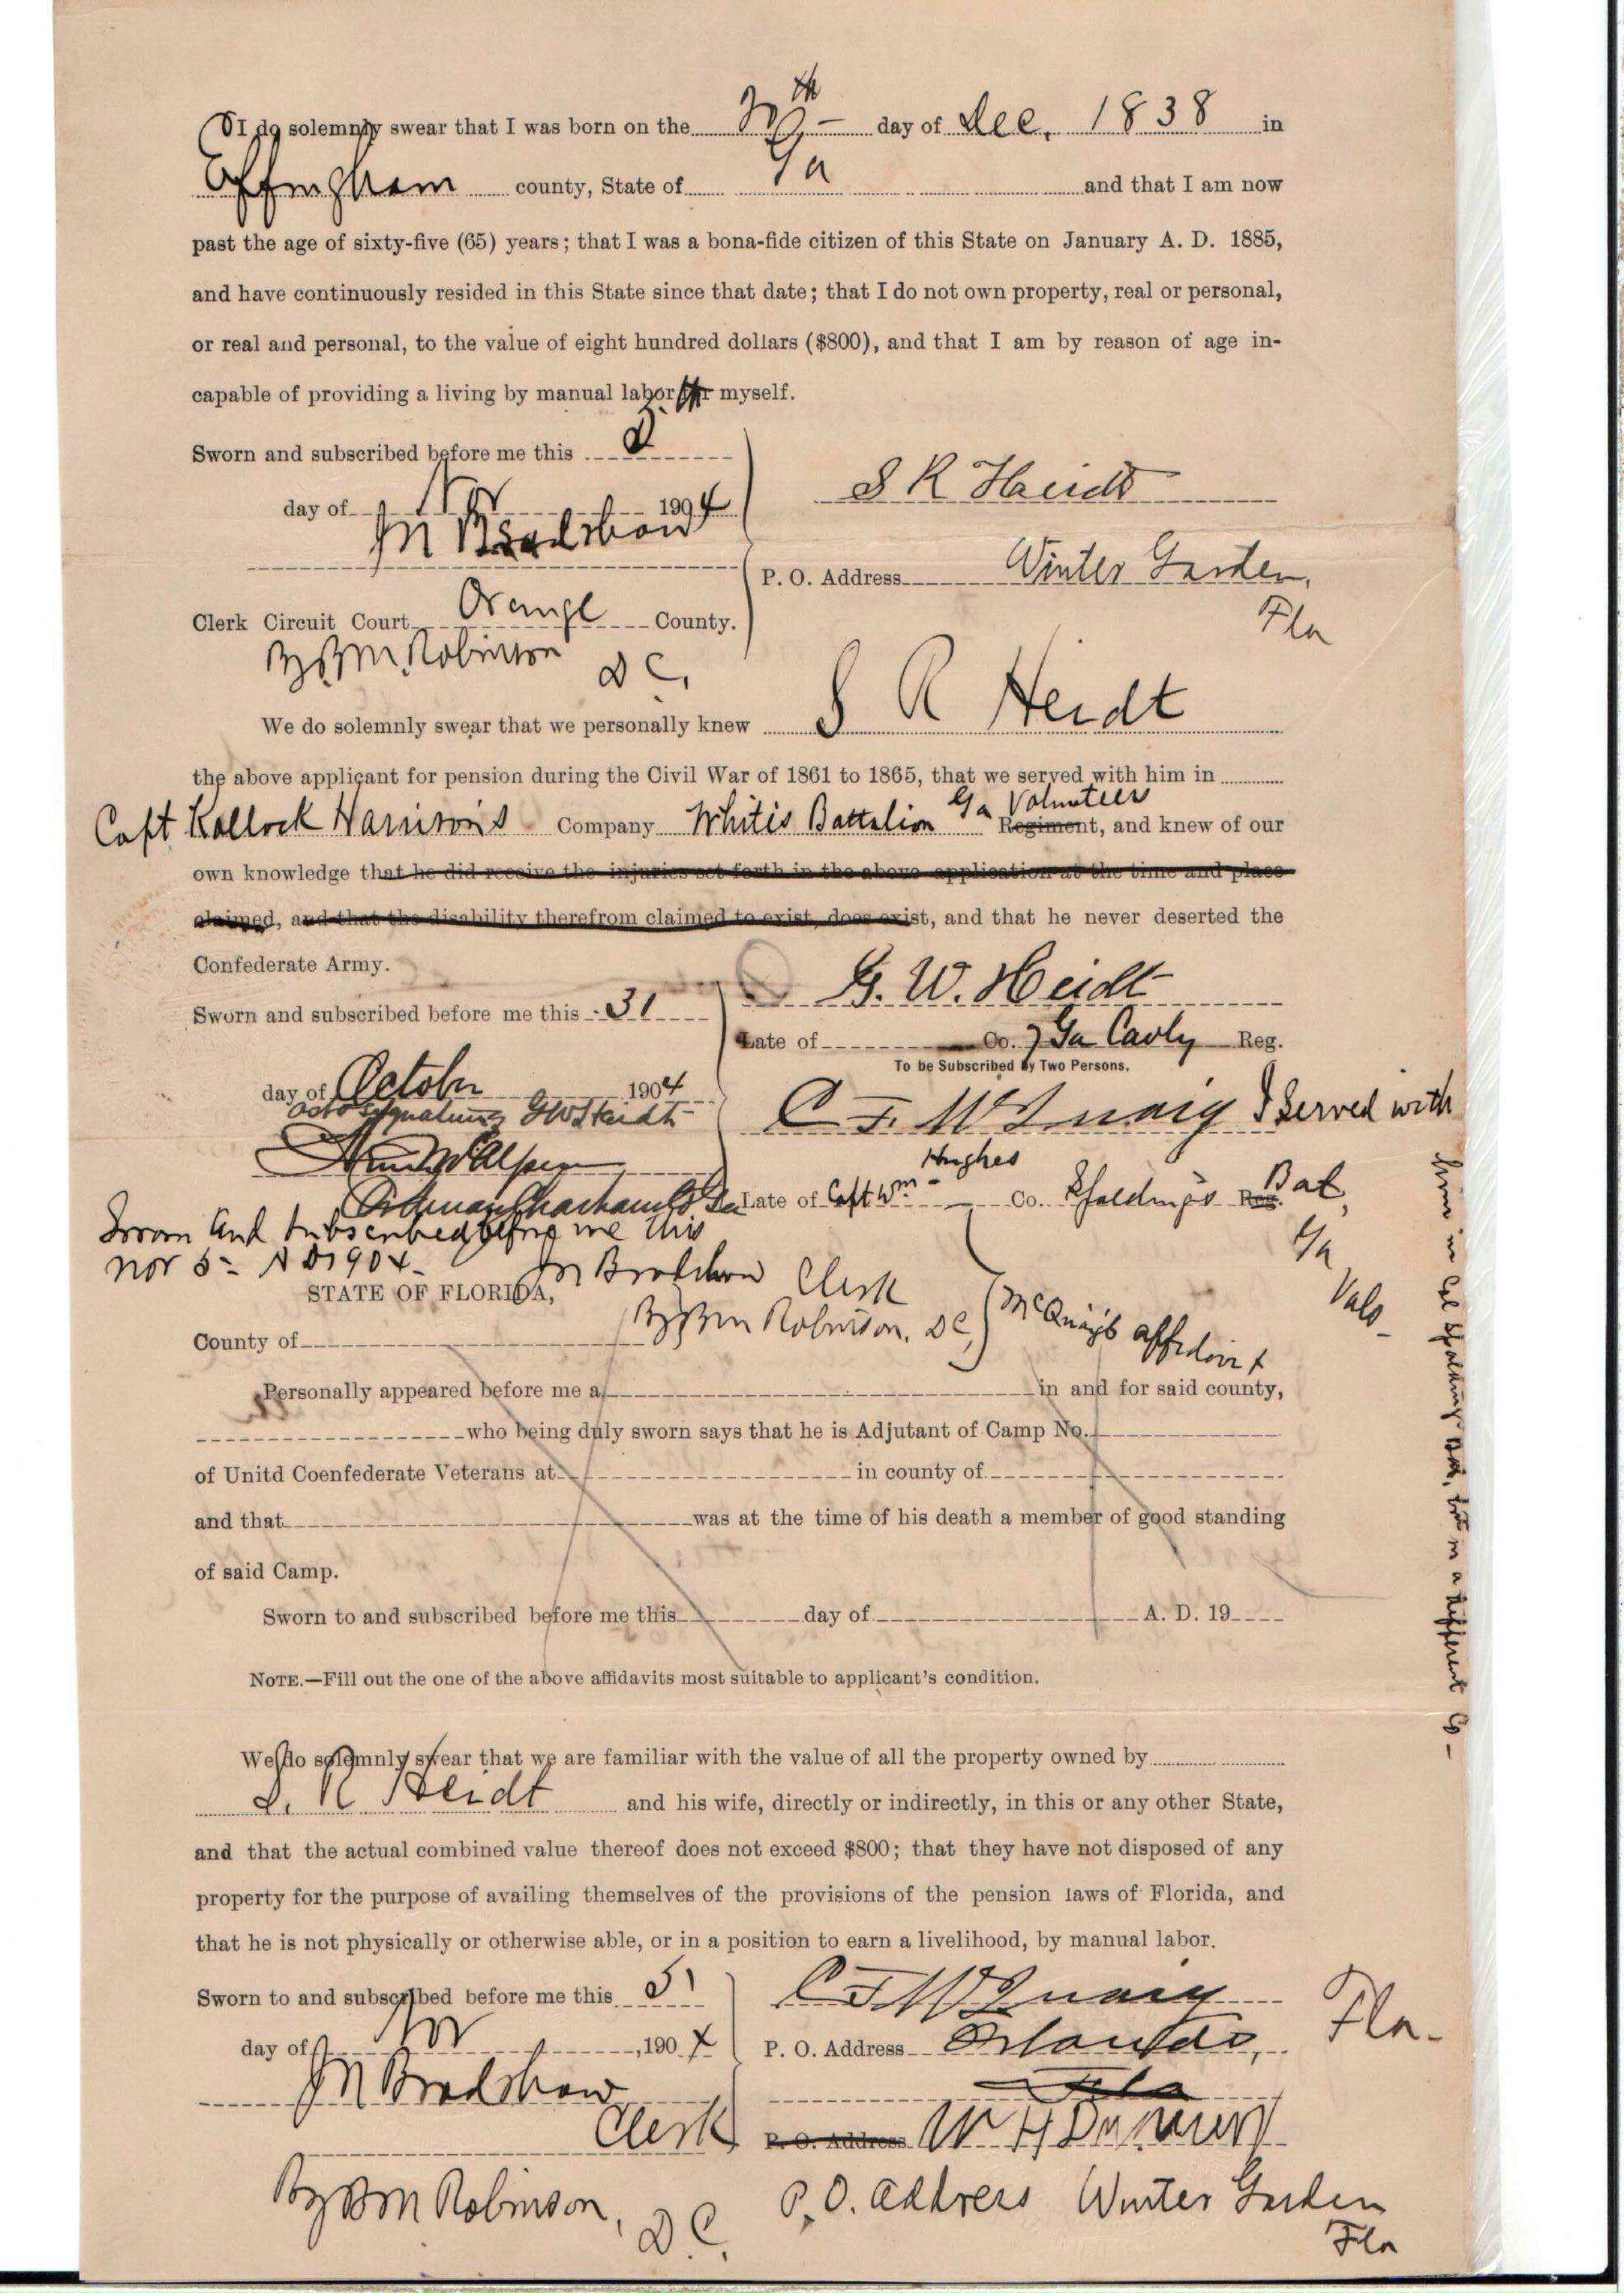 I do solemnly swear that I was born on the day of Dec. 1838 in
Effingham county, State of Ga and that I am now
past the age of sixty-five (65) years; that I was a bona-fide citizen of this State on January A. D. 1885,
and have continuously resided in this State since that date; that I do not own property, real or personal,
or real and personal, to the value of eight hundred dollars ($800), and that I am by reason of age in-
capable of providing a living by manual labor for myself.
Sworn and subscribed before me this
day of Nov 1904
S R Heidt
J M Bradshaw
P. O. Address Winter Garden,
Fla
Clerk Circuit Court Orange County.
By B M Robinson D C.
We do solemnly swear that we personally knew S R Heidt
the above applicant for pension during the Civil War of 1861 to 1865, that we served with him in
Capt Kollock Harrison's Company Whitis Battalion Ga Volunteers Regiment, and knew of our
own knowledge that he did receive the injuries set forth in the above application at the time and place
claimed, and that the disability therefrom claimed to exist, does exist, and that he never deserted the
Confederate Army.
G. W. Heidt
Sworn and subscribed before me this 31
Late of Co. 7 Ga Cavly Reg.
To be Subscribed by Two Persons.
day of October 1904
as to signature GW Heidt
C F McQuaig I served with
him in Col Spalding's Bat, but in a different Co -
Hughes
Late of Capt Wm Co. Spaldings Reg. Bat,
Ga
Vols -
Sworn and subscribed before me this
Nov 5 - AD 1904 -
J M Bradshaw Clerk
By B M Robinson, DC,
McQuaig's affidavit
STATE OF FLORIDA,
County of
Personally appeared before me a in and for said county,
who being duly sworn says that he is Adjutant of Camp No.
of Unitd Coenfederate Veterans at in county of
and that was at the time of his death a member of good standing
of said Camp.
Sworn to and subscribed before me this day of A. D. 19
NOTE.—Fill out the one of the above affidavits most suitable to applicant's condition.
We do solemnly swear that we are familiar with the value of all the property owned by
S. R Heidt and his wife, directly or indirectly, in this or any other State,
and that the actual combined value thereof does not exceed $800; that they have not disposed of any
property for the purpose of availing themselves of the provisions of the pension laws of Florida, and
that he is not physically or otherwise able, or in a position to earn a livelihood, by manual labor.
Sworn to and subscribed before me this 5
C F McQuaig
day of Nov, 1904
P. O. Address Orlando,
Fla -
J M Bradshaw
Fla
Clerk
P. O. Address W H
By B M Robinson, D. C.
P. O. Address Winter Garden
Fla